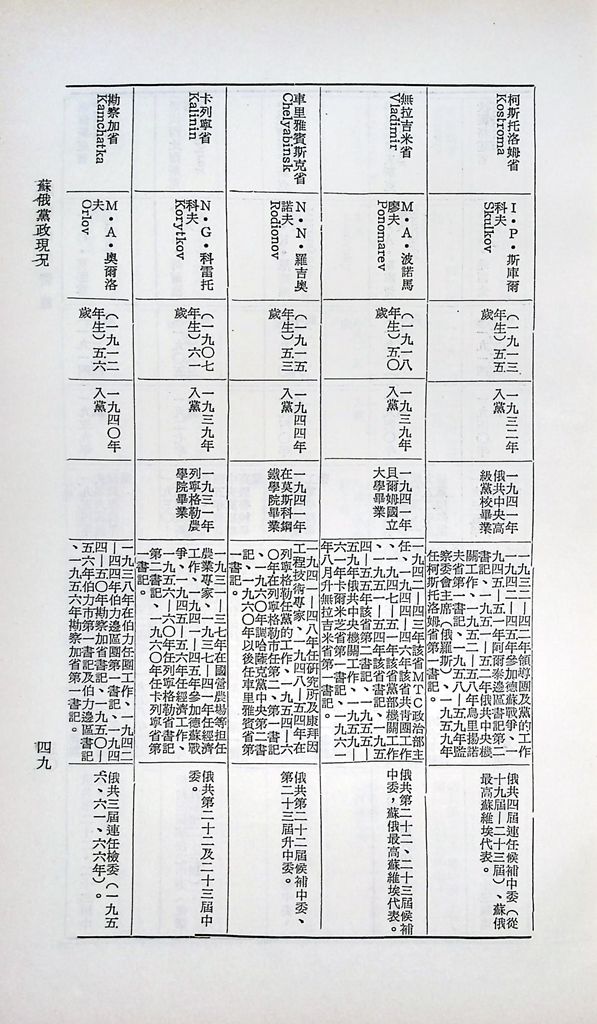 柯斯托洛姆省
Kostroma
I·P·斯庫爾
科夫
Skulkov
（一九一三
年生）五五
歲
一九三二年
入黨
一九四一年
俄共中央高
級黨校畢業
一九三二—四二年領導團及黨的工作
、一九四二—四五年參加德蘇戰爭、一
九四五—五一年阿爾泰邊區書記第二
書記、一九五一—五二年俄共中央機
關工作、一九五二—五八年烏里揚諾
夫省第一書記、一九五八—五九年監
察委會主席（俄羅斯）、一九五九年
任柯斯托洛姆省第一書記。
俄共四屆連任候補中委（從
十九屆—二十三屆）、蘇俄
最高蘇維埃代表。
無拉吉米省
Vladimir
M·A·波諾馬
廖夫
Ponomarev
（一九一八
年生）五〇
歲
一九三九年
入黨
一九四一年
貝爾姆國立
大學畢業
一九四二—四三年該省MTC政治部主
任、一九四四—四六年該省共青團工作
、一九四七—五一年該省黨部機關工作
、一九五二—五四年該省書記、一九五
四—五五年該省第二書記、一九五五—
五九年俄共中央機關工作、一九五九—
六一年卡爾米芝省第一書記、一九六一
年八月升無拉吉米省第一書記。
俄共第二十二、二十三屆候補
中委，蘇俄最高蘇維埃代表。
車里雅賓斯克省
Chelyabinsk
N·N·羅吉奧
諾夫
Rodionov
（一九一五
年生）五三
歲
一九四四年
入黨
一九四一年
在莫斯科鋼
鐵學院畢業
一九四一—四八年任研究所及康拜因
工程技術專家、一九四八—五四年在
列寧格勒任黨的工作、一九五四—六
〇年在列寧格勒市任第二、第一書
記、一九六〇年調哈薩克黨中央第二書
記、一九六〇年以後任車里雅賓省第
一書記。
俄共第二十二屆候補中委、
第二十三屆升中委。
卡列寧省
Kalinin
N·G·科雷托
科夫
Korytkov
（一九〇七
年生）六一
歲
一九三九年
入黨
一九三一年
列寧格勒農
學院畢業
一九三一—三七年在國營農場等担任
農業專家、一九三七—四一年任經濟
工作、一九四一—四五年參加德蘇戰
爭、一九四五—五六年任經濟工作、
一九五六—六〇年任列寧格勒省書記
第二書記、一九六〇年任卡列寧省第
一書記。
俄共第二十二及二十三屆中
委。
勘察加省
Kamchatka
M·A·奧爾洛
夫
Orlov
（一九一二
年生）五六
歲
一九四〇年
入黨
一九三八年在伯力任團工作、一九四二
—四四年伯力邊區團第一書記、一九四
四—五〇年勘察加省書記、一九五〇—
五六年伯力市第一書記及伯力邊區書記
、一九五六年勘察加省第一書記。
俄共三屆連任檢委（一九五
六、六一、六六年）。
蘇俄黨政現況
四九